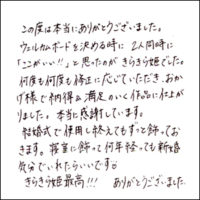 この度は本当にありがとうございました。
ウェルカムボードを決める時に 2人同時に
「ここがいい!!」と思ったのが きらきら姫でした。
何度も何度も修正に応じていただき、おかげ
様で納得&満足のいく作品に仕上が
りました。本当に感謝しています。
結婚式で使用し終えてもずっと飾ってお
きます。寝室に飾って何年経っても新婚
気分でいれたらいいです
きらきら姫最高!!! ありがとうございました